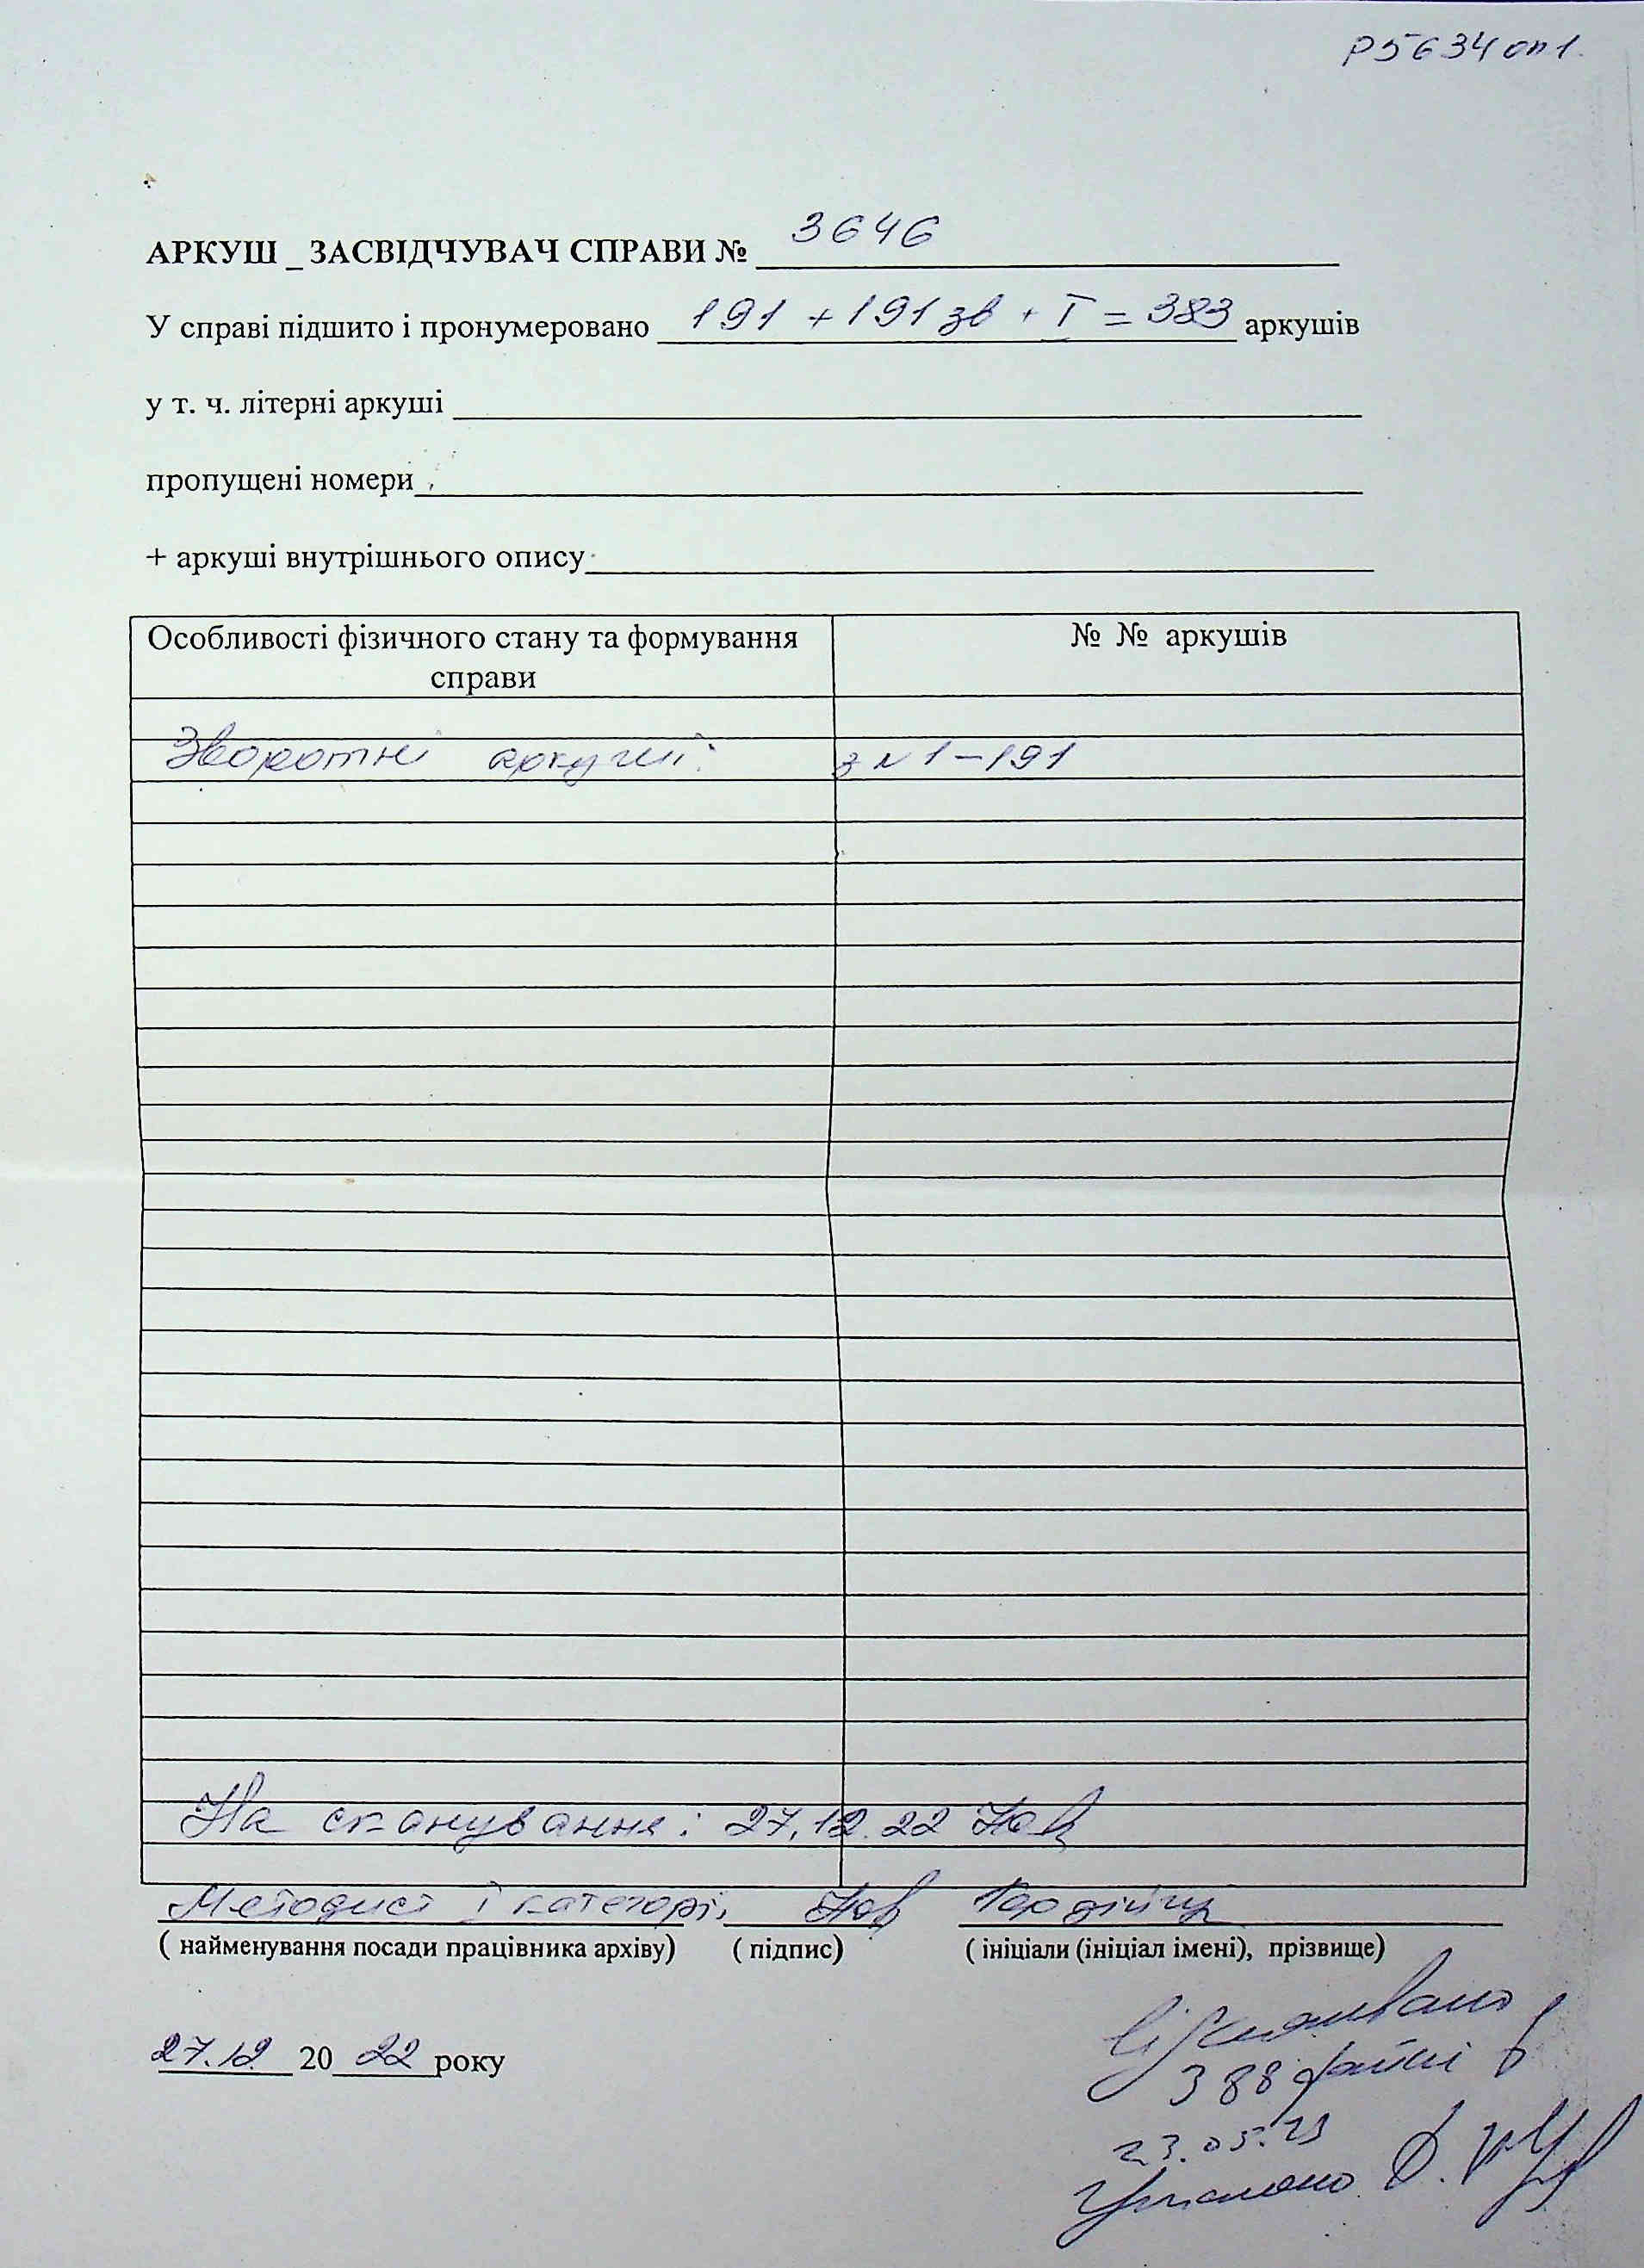 Р5634 оп1.
АРКУШ _ ЗАСВІДЧУВАЧ СПРАВИ № 3646
У справі підшито і пронумеровано 191 + 191 зв + I = 383 аркушів
у т. ч. літерні аркуші
пропущені номери
+ аркуші внутрішнього опису
Особливості фізичного стану та формування № № аркушів
справи
Зворотні аркуші: з № 1-191
На сканування: 27.12.22
Методист І категорії
( найменування посади працівника архіву) ( підпис) ( ініціали (ініціал імені), прізвище)
27.12 20 22 року
Відскановано
388 файлів
23.05.23